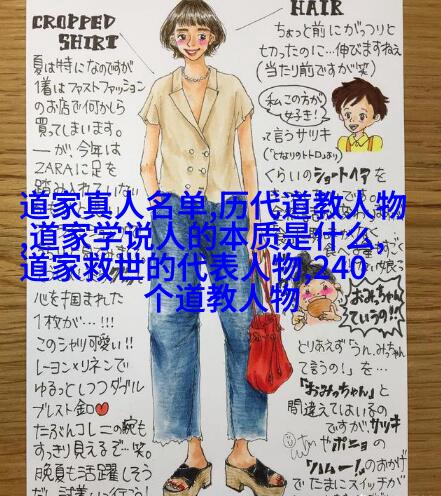 CROPPED
SHIRT
夏は特になのですが
1着はファストファッション
のお店で何かしら
買ってしまいます。
一が、今年は
ZARAに足を
踏み入れない
HAIR
ちょっと前にがっつりと
切ったのに…伸びますねぇ
(当たり前ですが笑)
私この方が
好き!
って言うサツキ
(「となりのトトロ」より)
くらいのショートヘアを
道家真人名单,历代道教人物
,道家学说人的本质是什么,
道家救世的代表人物,240
个道教人物
心を掴まれた
1枚が…!!!
このシャツ可愛い!!
レーヨン×リネンで
ゆるっとしつつダブル
ブレスト
たぶんコレニの腕も
すっきり見えるぞ…笑。
晩夏も活躍しそう
おみっちゃん
ていうの!!
とりあえず「うん、みちゃん
て言うの!」を
「おみっちゃん」と
間違えてはいるの
ですが、サツキ
やポニョの
「ハムー!」のおかげ
でたまにスイッチが